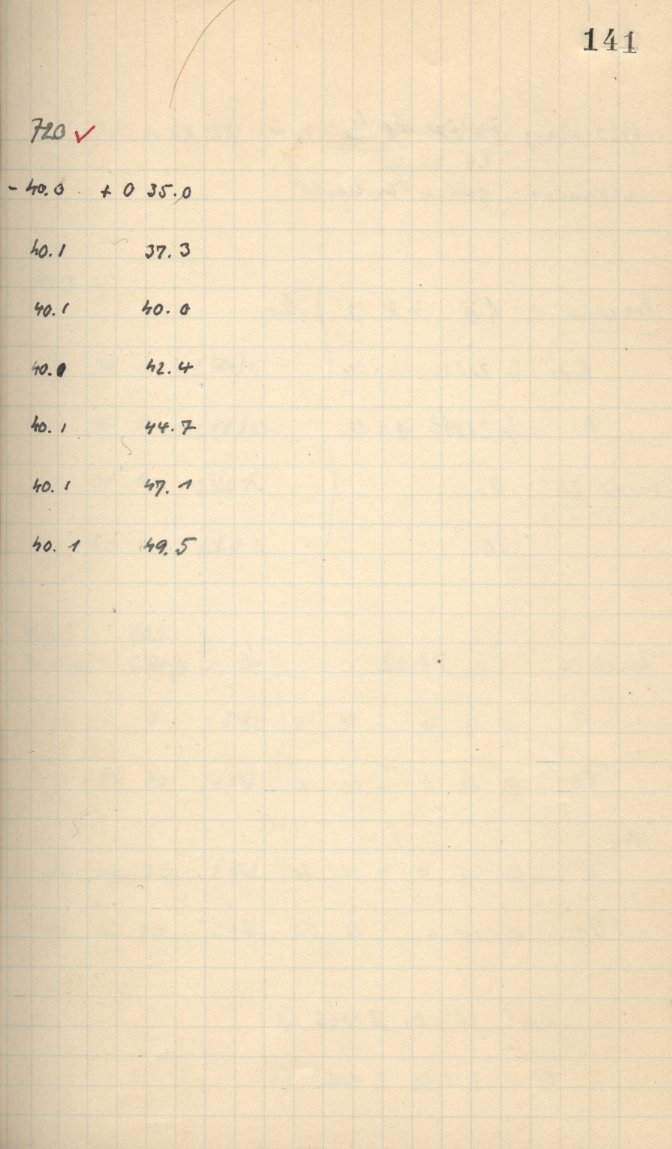 141
720 ✓
- 40.0 + 0 35.0
40.1 37.3
40.1 40.0
40.0 42.4
40.1 44.7
40.1 47.1
40.1 49.5